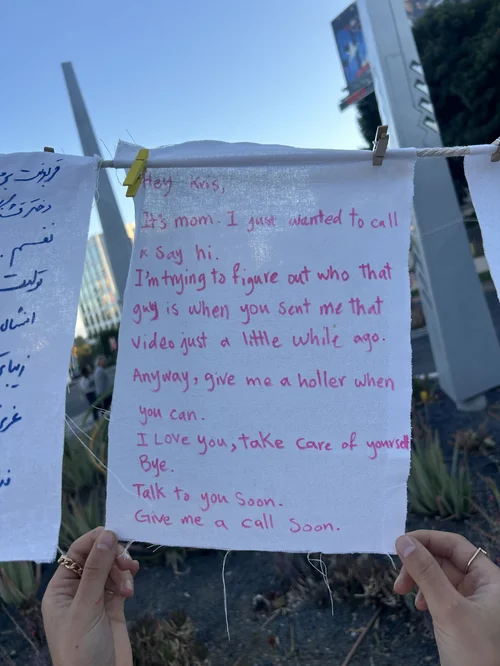 Hey Kris,
It's mom. I just wanted to call
& say hi.
I'm trying to figure out who that
guy is when you sent me that
video just a little while ago.
Anyway, give me a holler when
you can.
I Love you, take care of yourself
Bye.
Talk to you soon.
Give me a call soon.
قربونت
نفسم